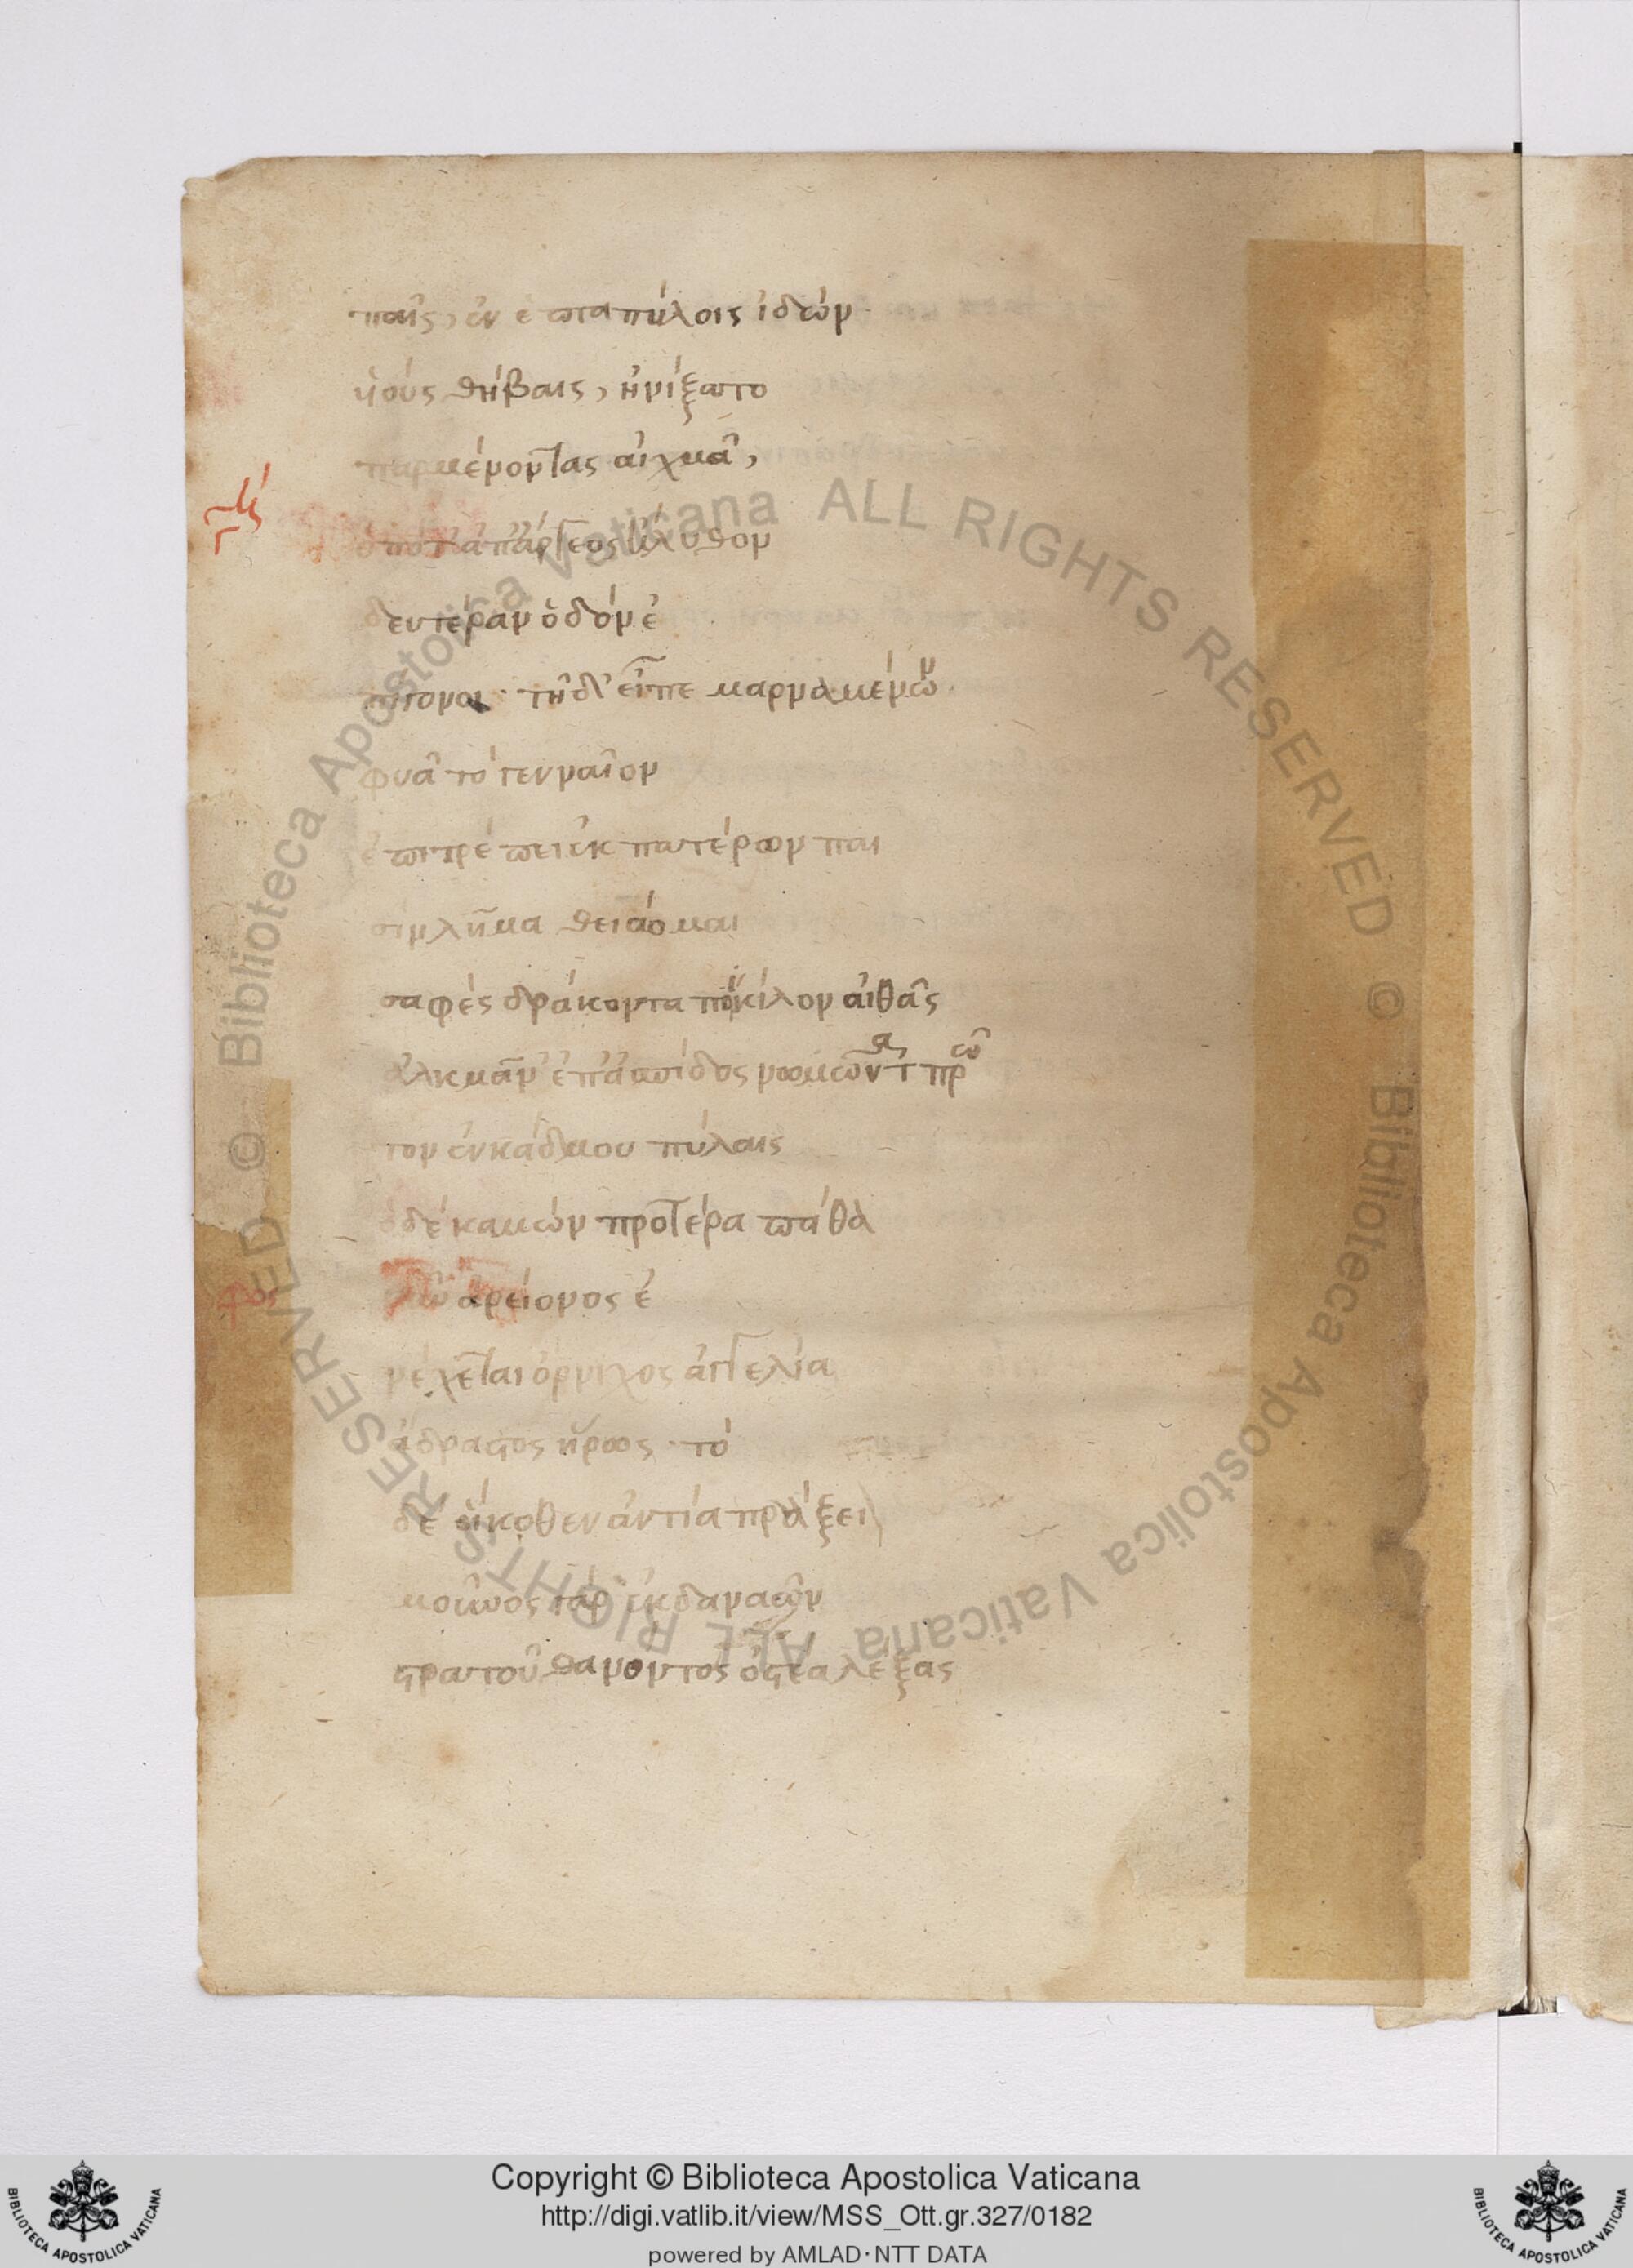 παῖς, ἐν ἑπταπύλοις ἰδὼν
υἱοὺς θήβαις, ἠνίξατο
παρμένοντας αἰχμᾶ,
ὁπότ' ἀπ' ἄργεος ἤλυθον
δευτέραν ὁδὸν ἐ
πίγονοι· τῆδ' εἶπε μαρναμένων.
φυᾶ τὸ γενναῖον
ἐπιπρέπει ἐκ πατέρων παι
σὶν λῆμα θειάομαι
σαφὲς δράκοντα ποικίλον αἰθᾶς
ἀλκμᾶν' ἐπ' ἀσπίδος νωμῶντα πρῶ
τον ἐν κάδμου πύλαις
ὁ δὲ καμὼν προτέρα πάθα
νῦν ἀρείονος ἐ
νέχεται ὄρνιχος ἀγγελία
ἄδραστος ἥρως· τὸ
δὲ οἴκοθεν ἀντία πράξει
μοῦνος γὰρ ἐκ δαναῶν
στρατοῦ θανόντος ὀστέα λέξας
© Biblioteca Apostolica Vaticana ALL RIGHTS RESERVED © Biblioteca Apostolica Vaticana ALL RIGHTS RESERVED
Copyright © Biblioteca Apostolica Vaticana
http://digi.vatlib.it/view/MSS_Ott.gr.327/0182
powered by AMLAD·NTT DATA
BIBLIOTECA APOSTOLICA VATICANA
BIBLIOTECA APOSTOLICA VATICANA